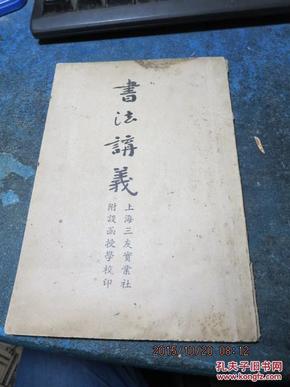 書法講義
上海三友實業社
附設函授學校印
2015/10/20 08:12
孔夫子旧书网